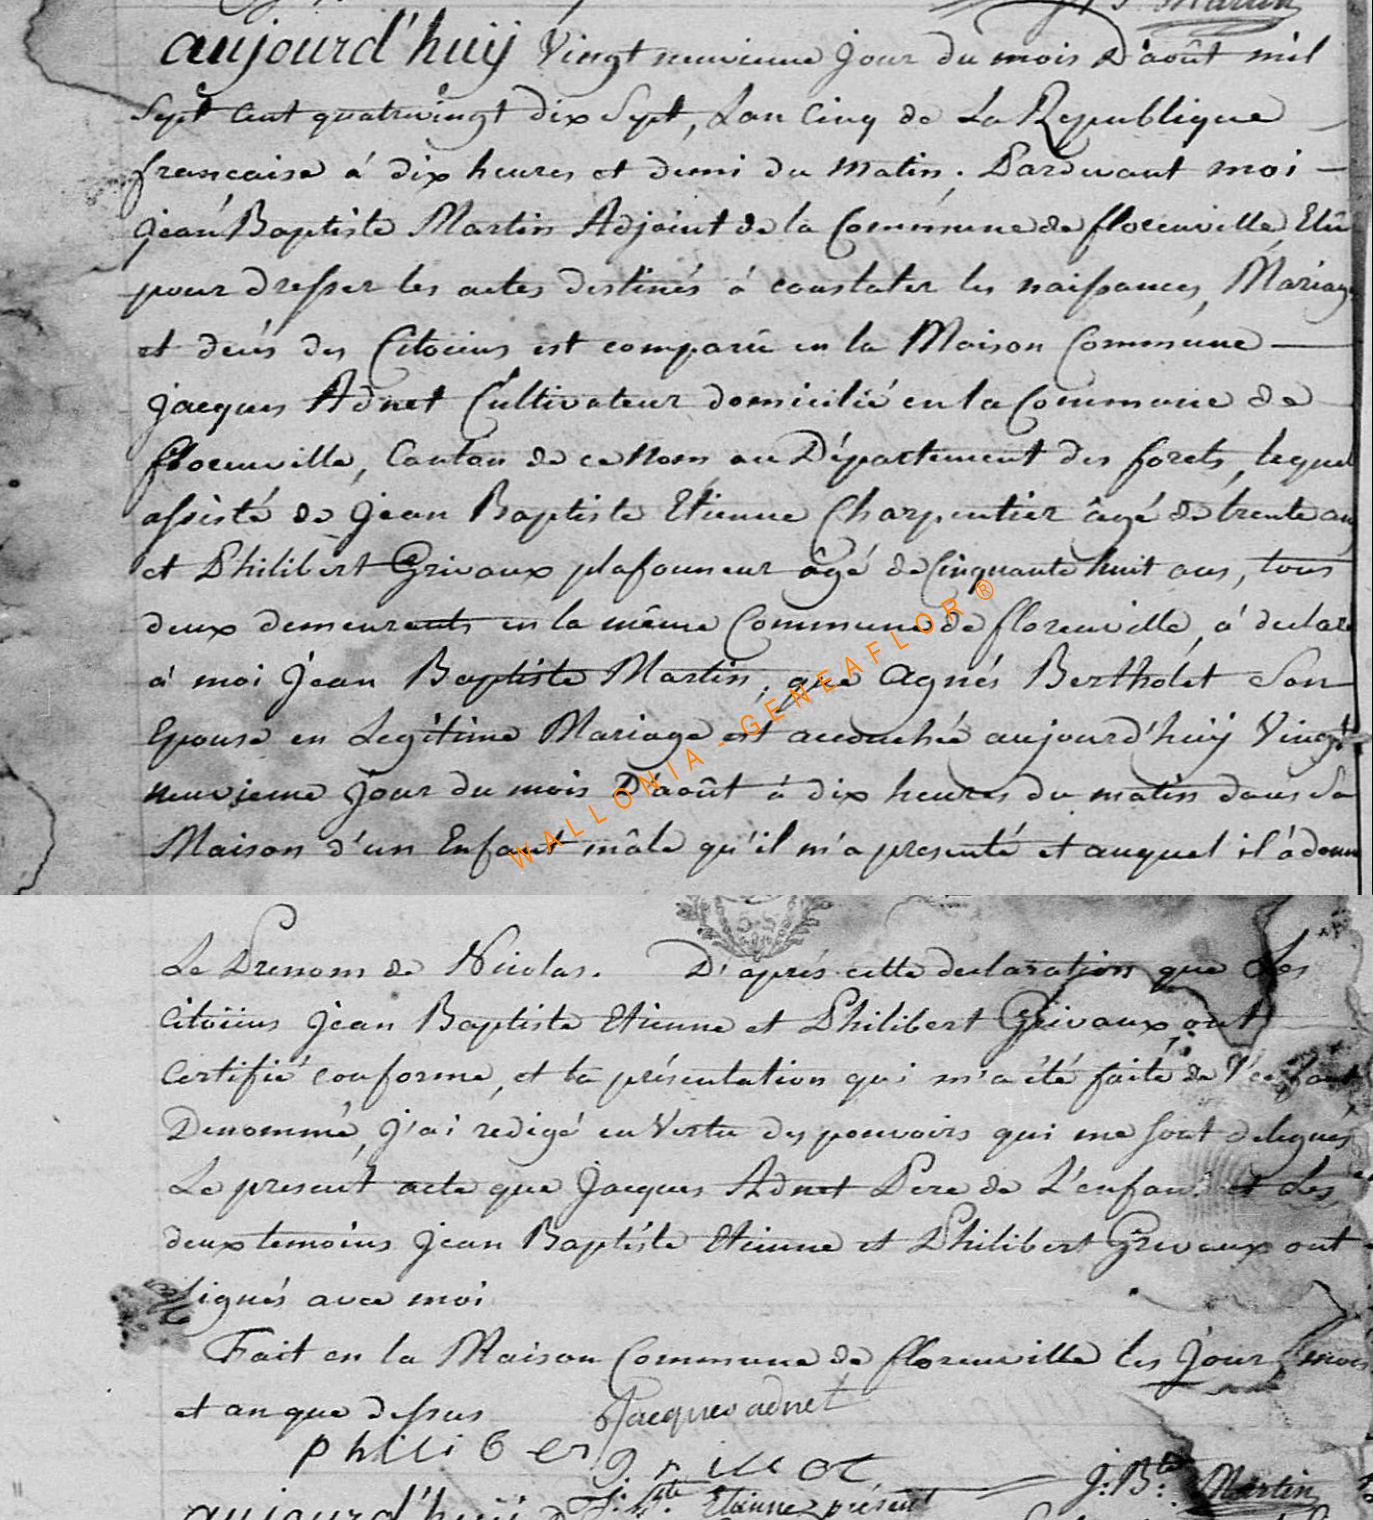 J: B.te Martin
aujourd'huÿ Vingt neuvieme jour du mois D'août mil
Sept Cent quatrevingt dix Sept, Lan Cinq de La Republique
francaise á dix heures et demi du matin. Pardevant moi
jean Baptiste Martin Adjoint de la Commune de florenville Elû
pour dresser les actes destinés á constater les naissances, Mariage
et decés des Citoiens est comparû en la Maison Commune
jacques Adnet Cultivateur domicilié en la Commune de
florenville, Canton de ce Nom au Département des forets, lequel
assisté de jean Baptiste Etienne Charpentier âgé de trente ans
et Philibert Grivaux plafonneur âgé de Cinquante huit ans, tous
deux demeurants en la même Commune de florenville, á declaré
á moi jean Baptiste Martin, que Agnés Bertholet Son
Epouse en Legitime Mariage est accouchée aujourd'huÿ Vingt
neuvieme jour du mois D'août á dix heures du matin dans Sa
Maison d'un Enfant mâle qu'il m'a presenté et auquel il á donn
WALLONIA - GENEAFLOR ®
Le Prenom de Nicolas. D'aprés cette declaration que Les
citoiens jean Baptiste Etienne et Philibert Grivaux ont
Certifié conforme, et la présentation qui m'a été faite de l'enfant
Denommé, j'ai redigé en Vertu des pouvoirs qui me sont delegués
Le present acte que jacques Adnet Pere de L'enfant et Les
deux temoins jean Baptiste Etienne et Philibert Grivaux ont
signés avec moi
Fait en la Maison Commune de florenville les jour, mois
et an que dessus Jacques adnet
philiber
J: B.te Etienne présent J: B.te Martin
aujourd'huÿ